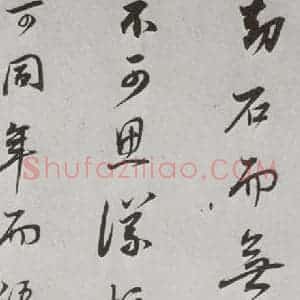 劫石而無
不可思議
可同年而
Shufaziliao.COM